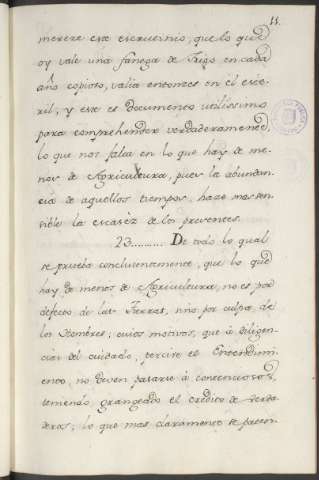 11.
merece este escrutinio; que lo que
oy vale una fanega de Trigo en cada
año copioso, valia entonces en el este-
ril; y este es documento utilissimo
para comprehender verdaderamente,
lo que nos falta en lo que hay de me-
nos de Agricultura, pues la abundan-
cia de aquellos tiempos, haze mas sen-
sible la escasèz de los presentes.
23.......... De todo lo qual
se prueba concluientemente, que lo que
hay de menos de Agricultura, no es por
defecto de las Tierras, sino por culpa de
los Hombres; cuios motivos, que à diligen-
cias del cuidado, percive el Entendimi-
ento, no deven pasarse à contenciosos,
teniendo grangeado el credito de verda-
deros; lo que mas claramente se presen-